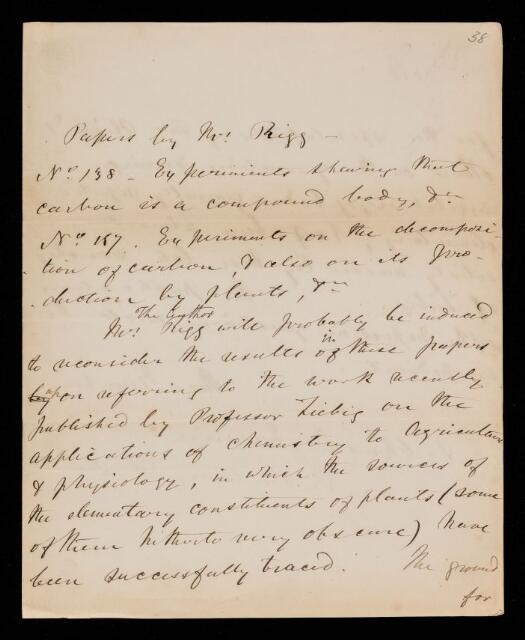 38
Papers by Mr. Rigg —
No. 138 – Experiments shewing that
carbon is a compound body, &c
No. 157. Experiments on the decomposi-
tion of carbon, & also on its pro-
duction by plants, &c
The author
Mr. Rigg will probably be induced
to reconsider the results in of these papers
by upon referring to the work recently
published by Professor Liebig on the
applications of chemistry to Agriculture
& physiology, in which the sources of
the elementary constituents of plants (some
of them hitherto very obscure) have
been successfully traced. The ground
for